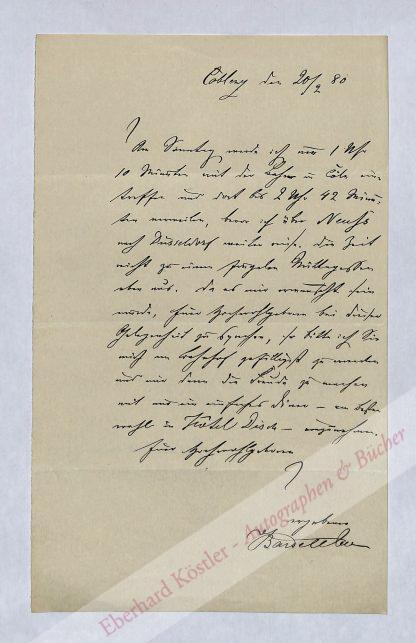 Coblenz den 20/2 80
Am Sonntag werde ich um 1 Uhr
10 Minuten mit der Bahn in Cöln ein-
treffen und dort bis 2 Uhr 42 Minu-
ten verweilen, bevor ich über Neuss
nach Düsseldorf weiter muß. Die Zeit
reicht zu einem Mittagessen
eben aus. Da es mir erwünscht sein
würde, Euer Hochwohlgeboren bei dieser
Gelegenheit zu sprechen, so bitte ich Sie
mich am Bahnhof gefälligst zu erwarten
und mir dann die Freude zu machen
mit mir ein einfaches Diner –
wohl im Hotel Disch – einzunehmen.
Euer Hochwohlgeboren
ergebener
Bardeleben
Eberhard Köstler - Autographen & Bücher